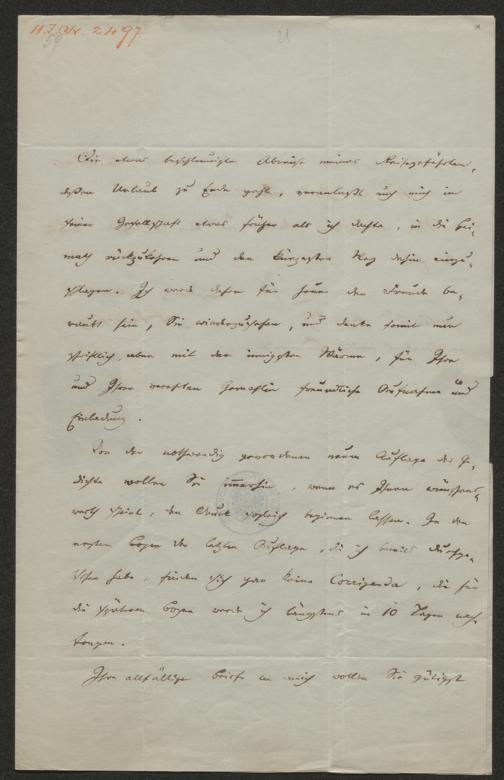 H. I. Nr. 21097
59
21
Die etwas beschleunigte Abreise meines Reisegefährten,
dessen Urlaub zu Ende geht, veranlaßt auch mich in
seiner Gesellschaft etwas früher als ich dachte, in die Hei-
math rückzukehren und den kürzesten Weg dahin einzu-
schlagen. Ich werde daher für heuer der Freude be-
raubt sein, Sie wiederzusehen, und danke somit nur
schriftlich, aber mit der innigsten Wärme, für Ihre
und Ihrer verehrten Gemahlin freundliche Aufnahme und
Einladung.
Von der nothwendig gewordenen neuen Auflage der Ge-
dichte wollen Sie immerhin, wenn es Ihnen wünschens-
werth scheint, den Druck sogleich beginnen lassen. In den
ersten Bogen der letzten Auflage, die ich bereits durchge-
sehen habe, finden sich gar keine Corrigenda, die für
die späteren Bogen werde ich längstens in 10 Tagen nach-
tragen.
Ihre allfälligen Briefe an mich wollen Sie gütigst